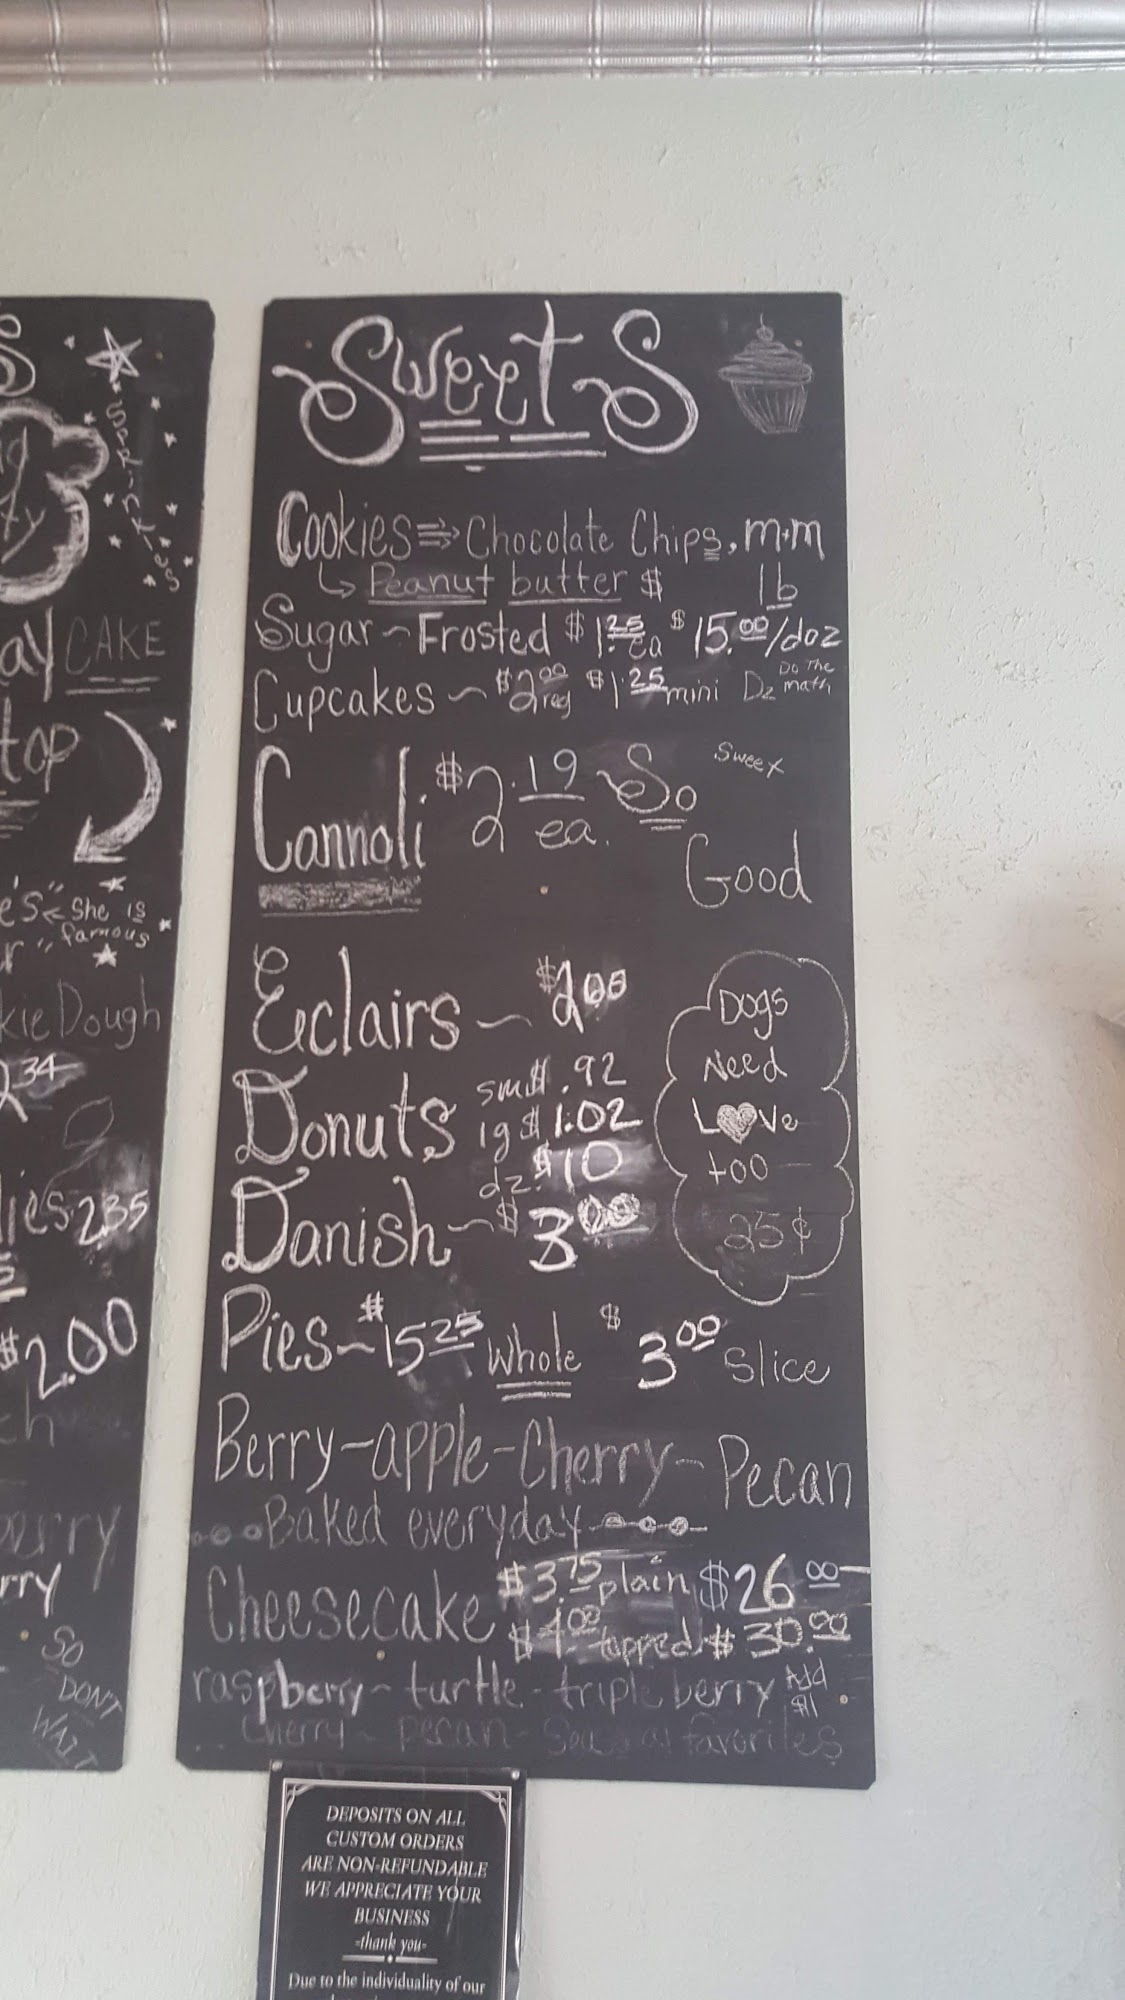 Sweets
Cookies ⇒ Chocolate Chips, m+m
↳ Peanut butter $ lb
Sugar ~ Frosted $1.25 ea $15.00/doz
Cupcakes ~ $2.00 reg $1.25 mini Dz Do The math
Cannoli $2.19 ea. So Sweet Good
Eclairs ~ $2.00
Donuts sm $.92
lg $1.02
dz. $10
Danish ~ $3.00
Dogs
Need
L♥ve
too
25¢
Pies ~ $15.25 Whole $3.00 Slice
Berry - apple - Cherry - Pecan
Baked everyday
Cheesecake $3.75 plain $26.00
$4.00 topped $30.00
raspberry ~ turtle - triple berry Add $1
Cherry ~ pecan - Seasonal favorites
DEPOSITS ON ALL
CUSTOM ORDERS
ARE NON-REFUNDABLE
WE APPRECIATE YOUR
BUSINESS
-thank you-
Due to the individuality of our
Sprinkles
CAKE
she is
famous
Dough
2.35
$2.00
SO
DON'T
WAIT